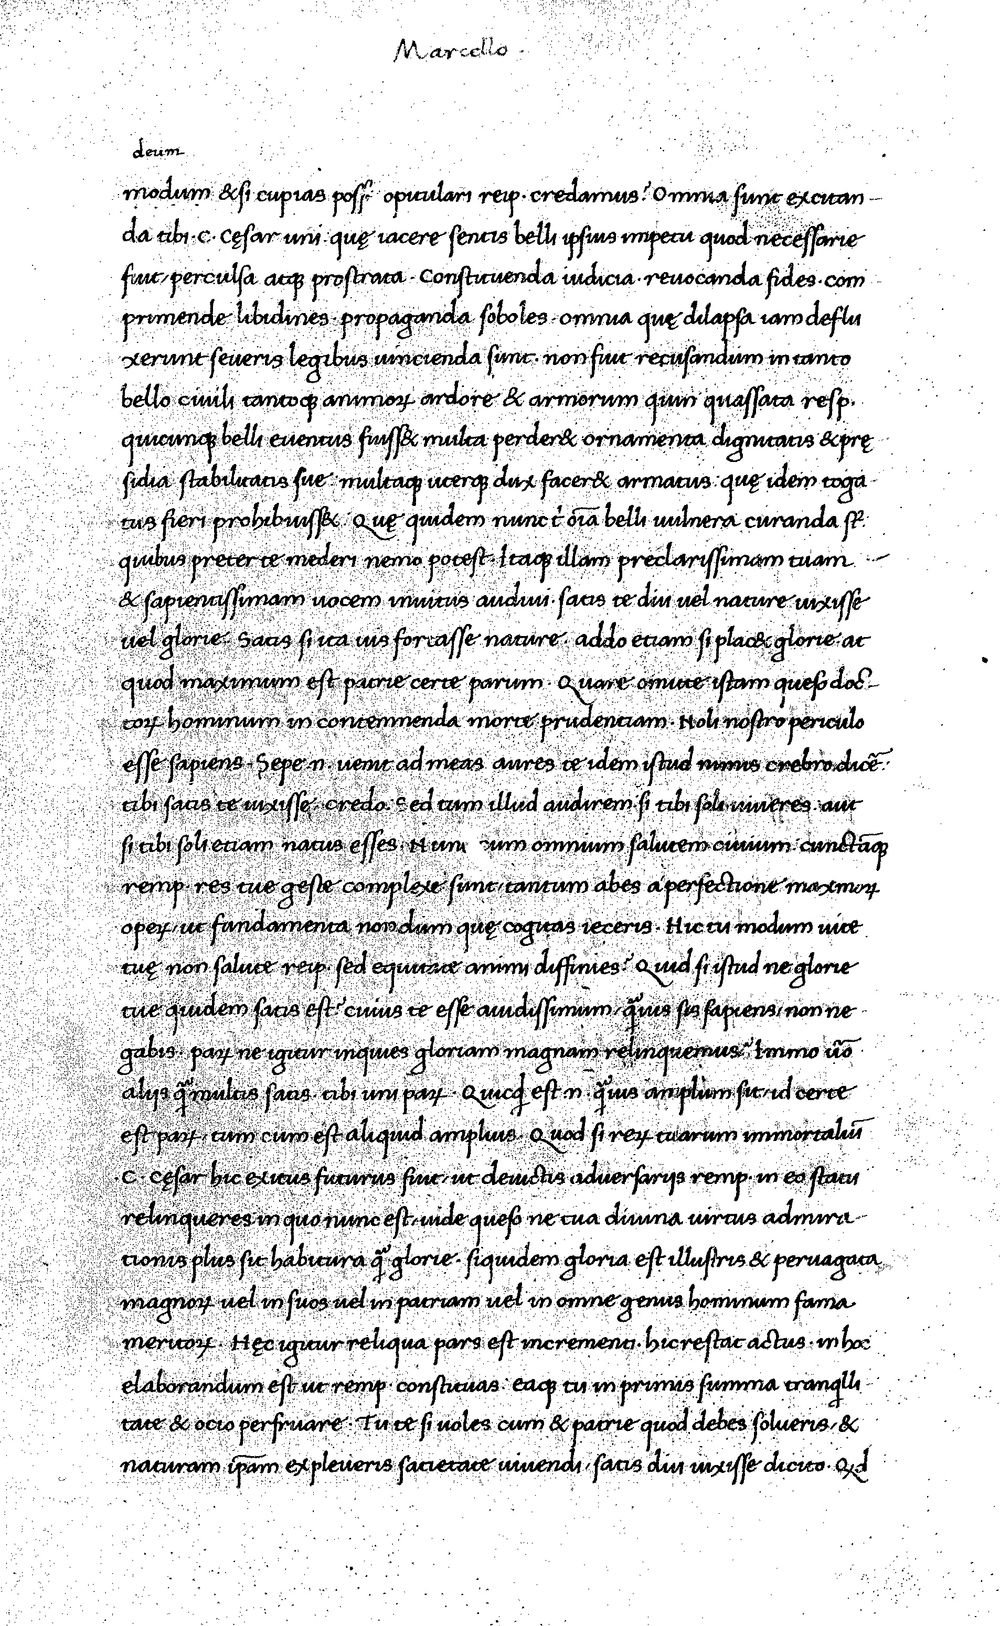 Marcello.
deum
modum & si cupias poss; opitulari reip. credamus? Omnia sunt excitan-
da tibi .C. Cęsar uni. quę iacere sentis belli ipsius impetu quod necessarie
fuit, perculsa atq; prostrata. Constituenda iudicia. reuocanda fides. com
primende libidines. propaganda soboles. omnia quę dilapsa iam deflu
xerunt seueris legibus uincienda sunt. non fuit recusandum in tanto
bello ciuili tantoq; animoꝝ ardore & armorum quin quassata resp.
quicunq; belli euentus fuiss& multa perder& ornamenta dignitatis & prę
sidia stabilitatis sue. multaq; uterq; dux facer& armatus. quę idem toga
tus fieri prohibuiss&. Quę quidem nunc t̄ oīa belli uulnera curanda st̄.
quibus preter te mederi nemo potest. Itaq; illam preclarissimam tuam
& sapientissimam uocem inuitus audiui. satis te diu uel nature uixisse
uel glorie. Satis si ita uis fortasse nature. addo etiam si plac& glorie. at
quod maximum est patrie certe parum. Quare omitte istam queso doc̄-
toꝝ hominum in contemnenda morte prudentiam. Noli nostro periculo
esse sapiens. Sepe .n. uenit ad meas aures te idem istud nimis crebro dicē.
tibi satis te uixisse. credo. Sed tum illud audirem si tibi soli uiueres. aut
si tibi soli etiam natus esses. Nunc cum omnium salutem ciuium cunctāq;
remp. res tue geste complexe sunt, tantum abes a perfectione maxmoꝝ
opeꝝ, ut fundamenta nondum quę cogitas ieceris. Hic tu modum uite
tuę non salute reip. sed equitate animi diffinies? Quid si istud ne glorie
tue quidem satis est? cuius te esse auidissimum, q̄uis sis sapiens, non ne
gabis. paꝝ ne igitur inquies gloriam magnam relinquemus? Immo ūo
alijs q̄uis multis satis. tibi uni paꝝ. Quicq̄d est .n. q̄uis amplum sit, id certe
est paꝝ, tum cum est aliquid amplius. Quod si reꝝ tuarum immortaliū
.C. Cęsar hic exitus futurus fuit, ut deuictis aduersarijs remp. in eo statu
relinqueres in quo nunc est, uide queso ne tua diuina uirtus admira-
tionis plus sit habitura q̄ glorie. siquidem gloria est illustris & peruagata
magnoꝝ uel in suos uel in patriam uel in omne genus hominum fama
meritoꝝ. Hęc igitur reliqua pars est incrementi. hic restat actus. in hoc
elaborandum est ut remp. constituas. eaq; tu in primis summa tranq̄lli
tate & ocio perfruare. Tu te si uoles cum & patrie quod debes solueris, &
naturam ip̄am expleueris satietate uiuendi, satis diu uixisse dicito. Qd